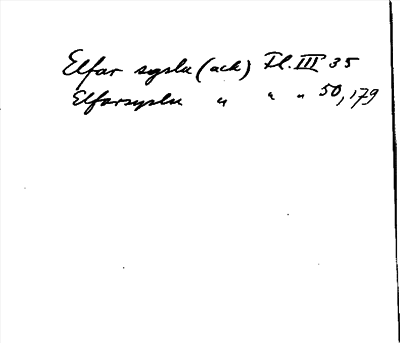 Elfar syslu (ack) Fl. III 35
Elfarsyslu " " " 50, 179